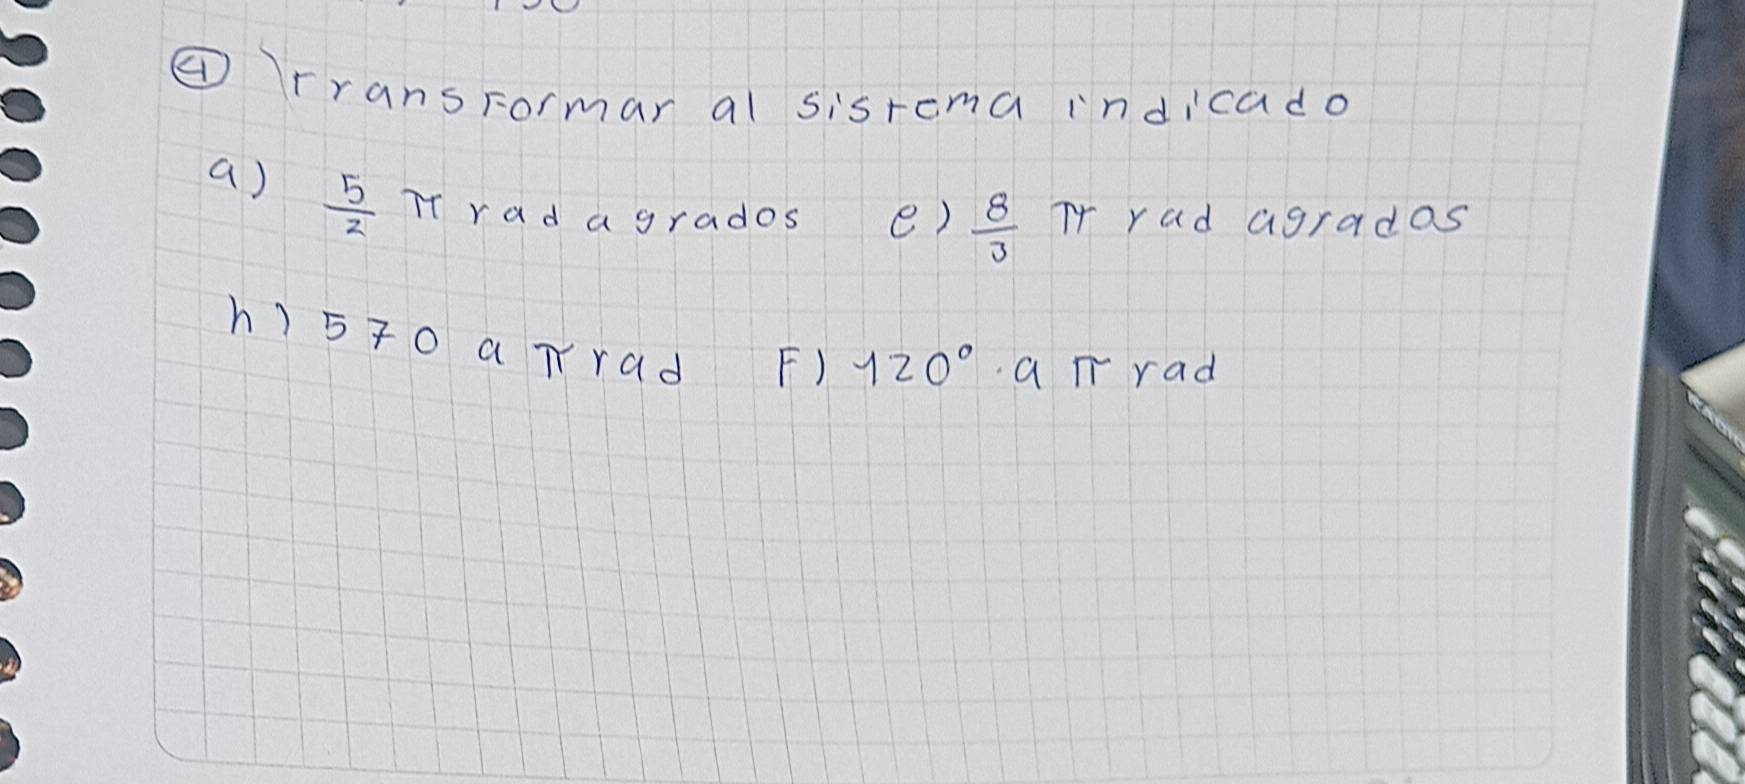 ④ Transformar al sistema indicado
a) 5/2 π rad a grados e) 8/3 π rad a grados
h) 570 a π rad F) 120° a π rad